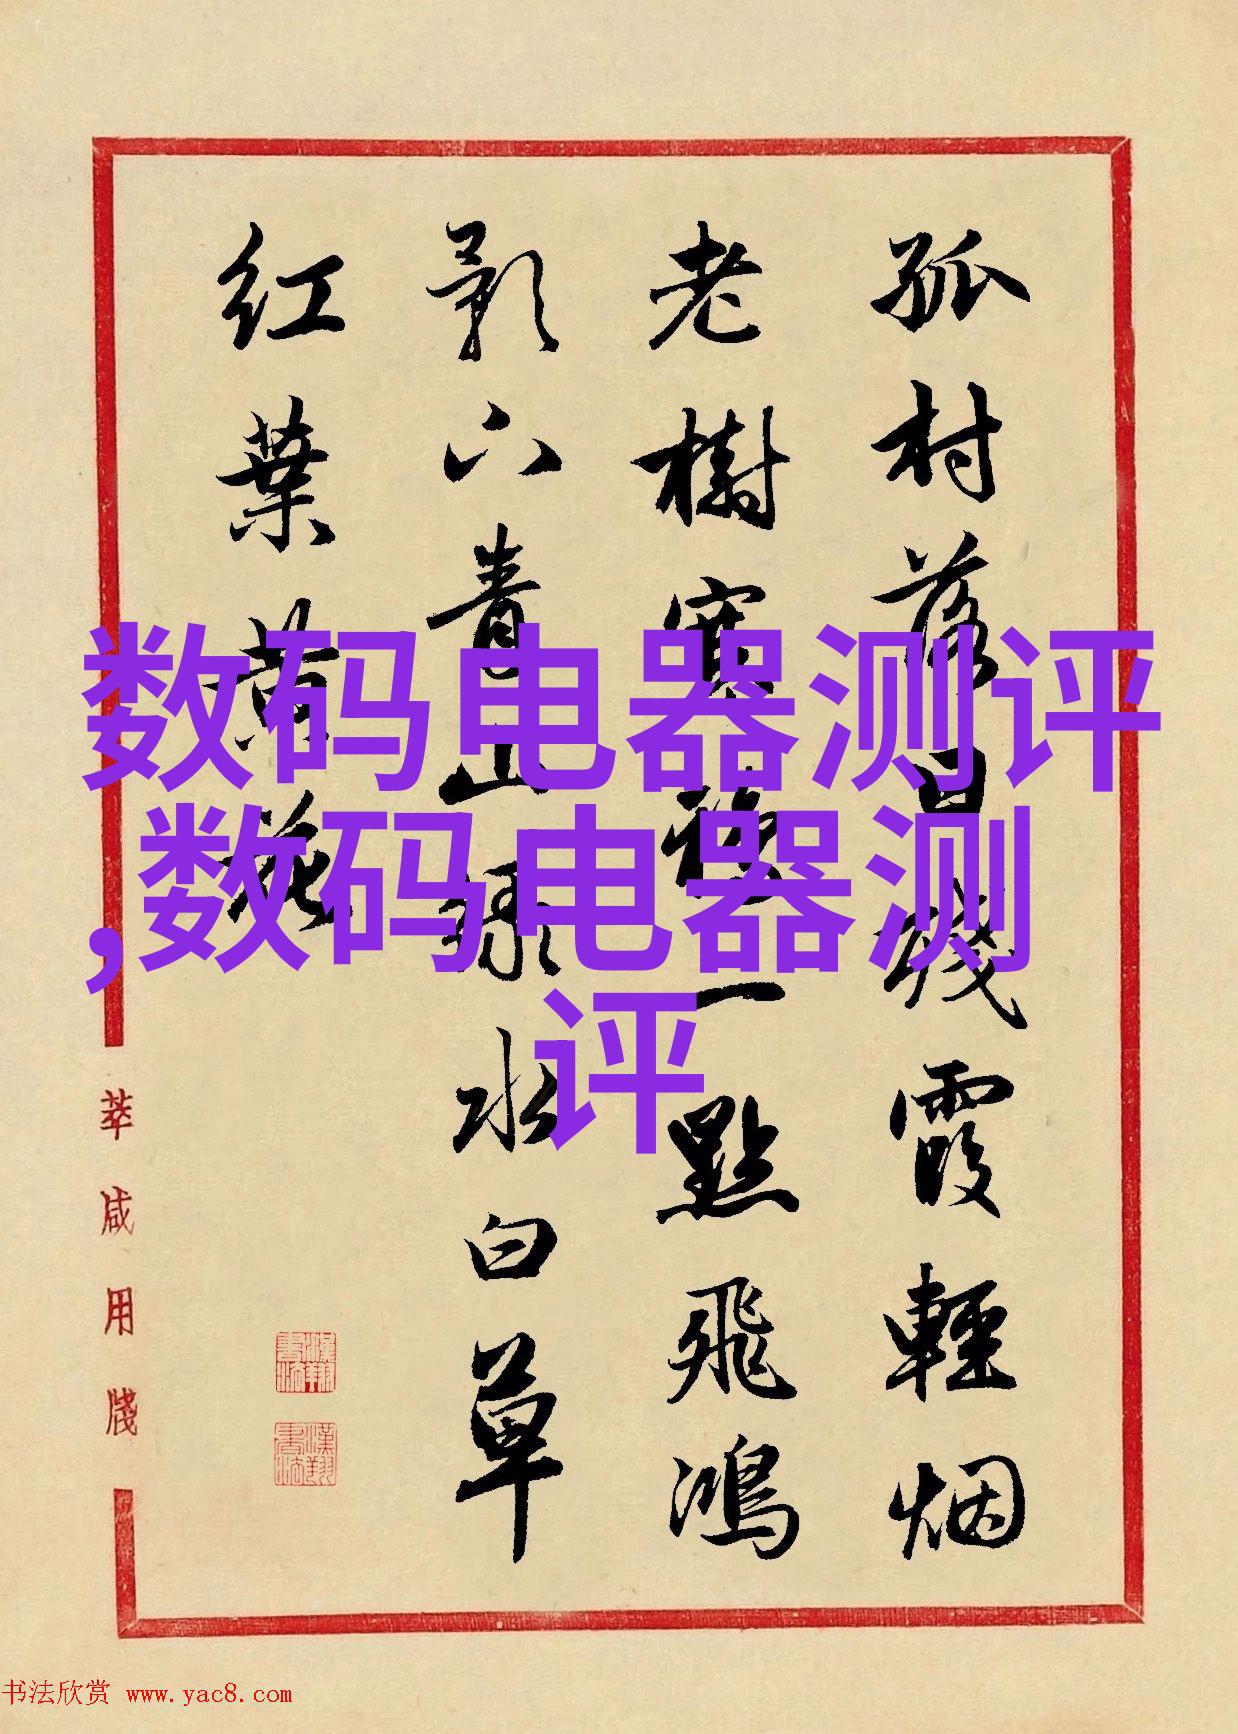 孤村落日残霞輕烟
老樹寒鸦一點飛鴻
影下青山綠水白草
红葉黄花
萃咸用牋
数码电器测评
,数码电器测
评
书法欣赏 www.yac8.com